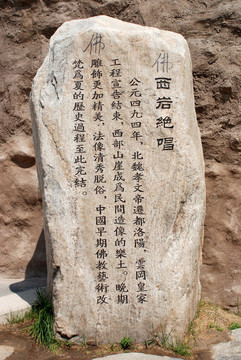 佛
西岩绝唱
公元四九四年，北魏孝文帝遷都洛陽，雲冈皇家
工程宣告結束，西部山崖成爲民間造像的樂土。晚期
雕飾更加精美，法像清秀脱俗，中國早期佛教藝術改
梵爲夏的歷史過程至此完結。
佛